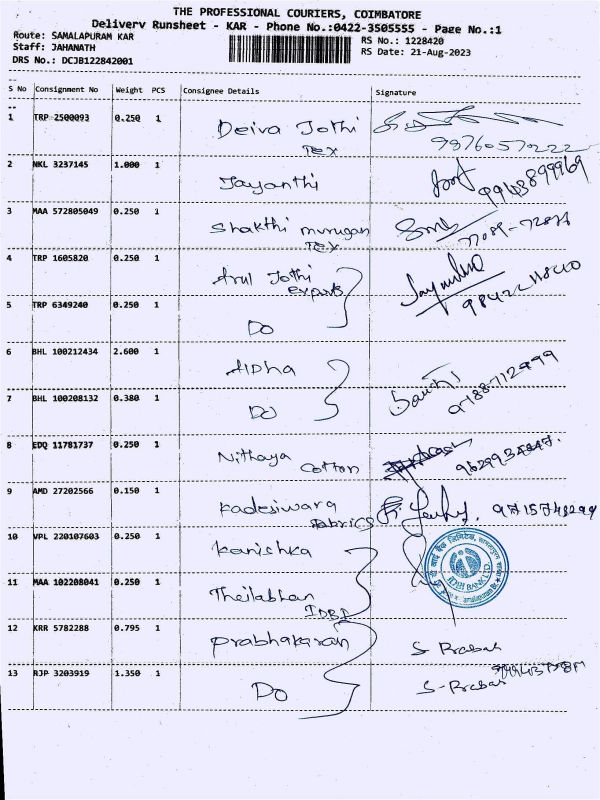 THE PROFESSIONAL COURIERS, COIMBATORE
Delivery Runsheet - KAR - Phone No.:0422-3505555 - Page No.:1
Route: SAMALAPURAM KAR
RS No.: 1228420
Staff: JAHANATH
RS Date: 21-Aug-2023
DRS No.: DCJB122842001
S No Consignment No Weight PCS Consignee Details Signature
1 TRP 2500093 0.250 1 Deiva Jothi
Tex
98760570222
2 NKL 3237145 1.000 1 Jayanthi
9943899969
3 MAA 572805049 0.250 1 Shakthi murugan
Tex
4 TRP 1605820 0.250 1 Arul Jothi
Exports
5 TRP 6349240 0.250 1 Do
6 BHL 100212434 2.600 1 Alpha
7 BHL 100208132 0.380 1 Do
8 EDQ 11781737 0.250 1 Nithaya
Cotton
9 AMD 27202566 0.150 1 Kadesiwara
Fabrics
9715748299
10 VPL 220107603 0.250 1 Kanishka
11 MAA 102208041 0.250 1 Theilabhan
IDBI
IDBI BANK LTD.
12 KRR 5782288 0.795 1 Prabhakaran S Prabak
13 RJP 3203919 1.350 1 Do S-Prabak